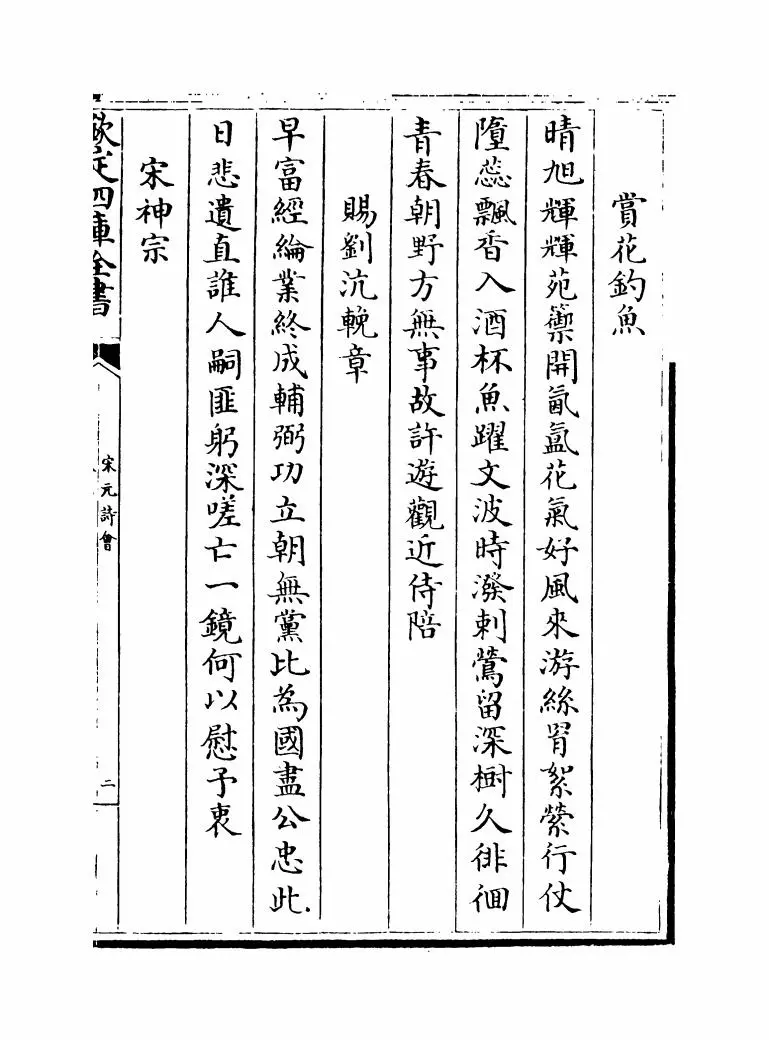 賞花釣魚
晴旭輝輝苑籞開氤氲花氣好風來游絲罥絮縈行仗
墮蕊飄香入酒杯魚躍文波時潑剌鶯留深樹久徘徊
青春朝野方無事故許遊觀近侍陪
賜劉沆輓章
早富經綸業終成輔弼功立朝無黨比為國盡公忠此
日悲遺直誰人嗣匪躬深嗟亡一鏡何以慰予衷
宋神宗
欽定四庫全書
宋元詩會
二